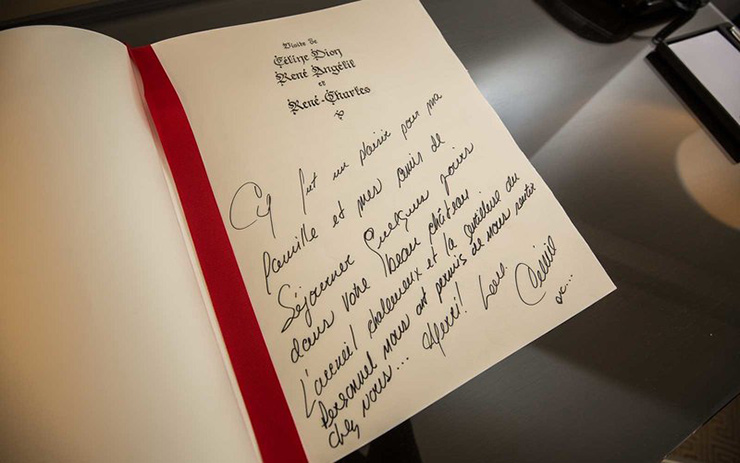 Visite de
Céline Dion
René Angélil
et
René-Charles
Ce fut un plaisir pour ma
famille et mes amis de
Séjourner quelques jours
dans votre beau château.
L'accueil chaleureux et la gentillesse du
Personnel nous ont permis de nous sentir
chez nous... Merci! Love
Céline
xx...